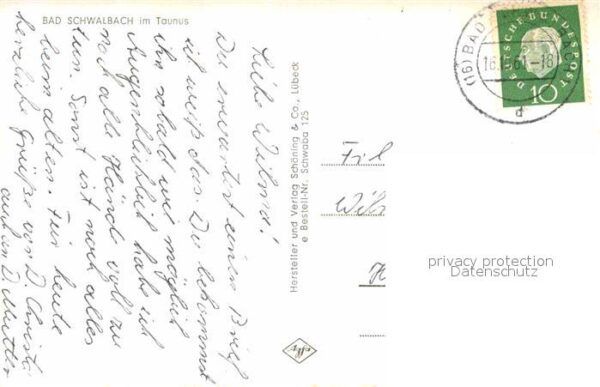 BAD SCHWALBACH im Taunus
Liebe Wilma!
Du erwartest einen Brief
ich weiß das. Du bekommst
ihn sobald wie möglich
Augenblicklich habe ich
noch alle Händ voll zu
tun. Sonst ist noch alles
beim alten. Für heute
herzliche Grüße von D. Christa
auch an D. Mutter
Hersteller und Verlag Schöning & Co., Lübeck
Bestell-Nr. Schwaba 125
DEUTSCHE BUNDESPOST
10
(16) BAD
61.-16
d
privacy protection
Datenschutz